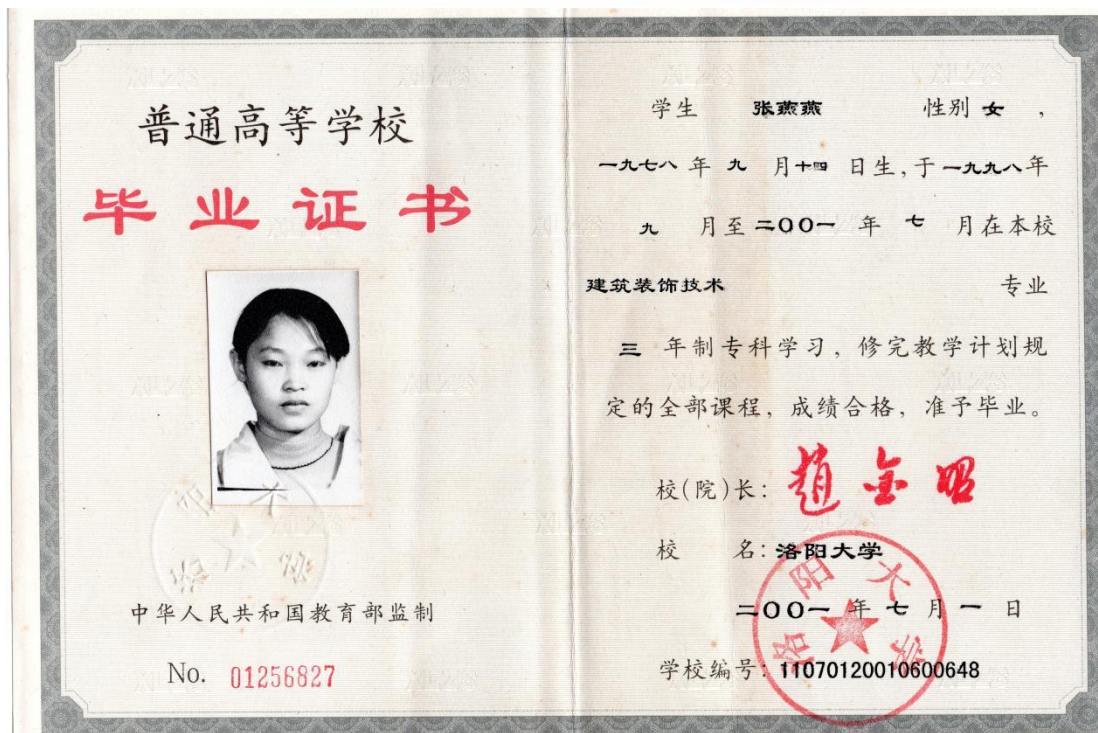 普通高等学校
毕业证书
洛阳大学
中华人民共和国教育部监制
No. 01256827
学生 张燕燕 性别 女 ,
一九七八 年 九 月 十四 日生, 于 一九九八 年
九 月至 二00一 年 七 月在本校
建筑装饰技术 专业
三 年制专科学习, 修完教学计划规
定的全部课程, 成绩合格, 准予毕业。
校(院)长: 趙金昭
校 名: 洛阳大学
洛阳大学
二00一 年 七 月 一 日
学校编号: 11070120010600648